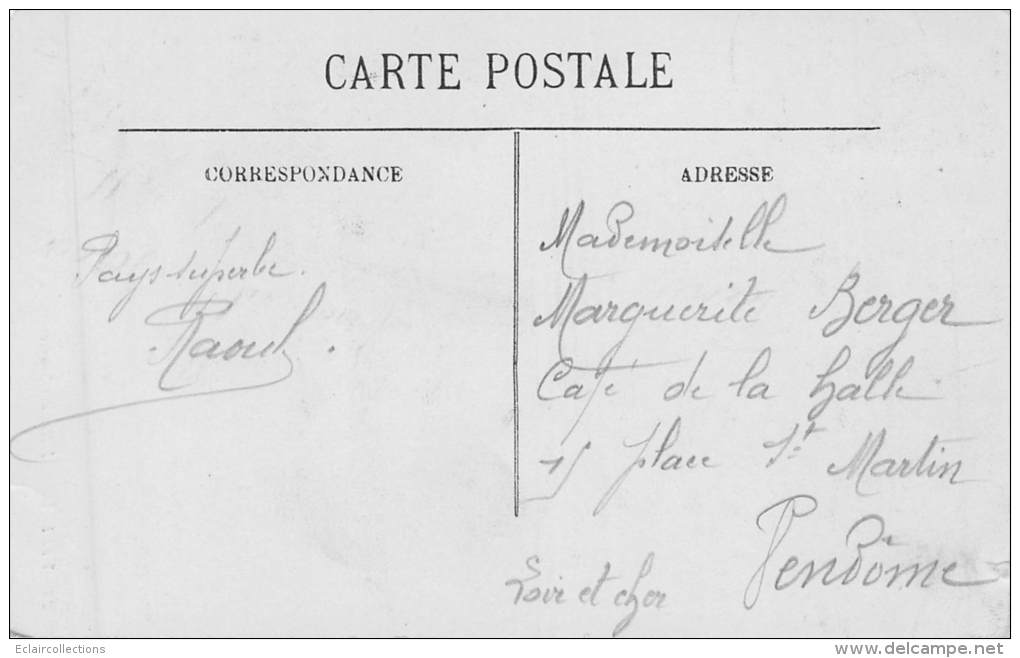 CARTE POSTALE
CORRESPONDANCE
Pays superbe.
Raoul.
ADRESSE
Mademoiselle
Marguerite Berger
Café de la halle
15 place St Martin
Vendôme
Loir et cher
Eclaircollections
www.delcampe.net